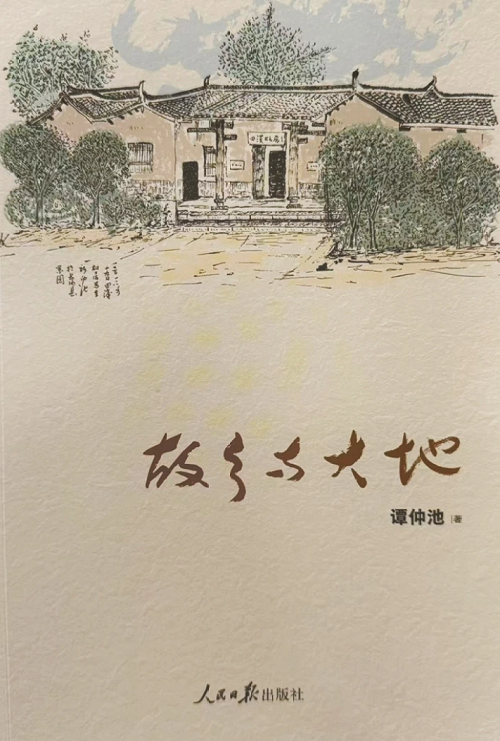 故乡与大地
谭仲池 著
人民日报出版社